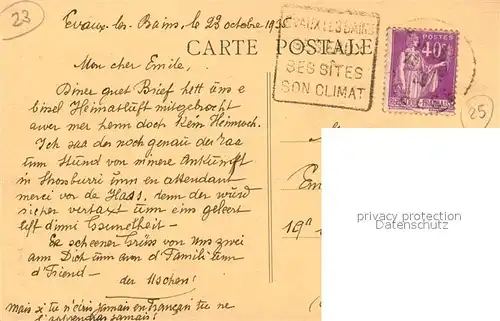 23
Evaux-les-Bains, le 23 octobre 1935
CARTE POSTALE
EVAUX LES BAINS
SES EAUX
SES SITES
SON CLIMAT
POSTES
40c
25
Mon cher Emile,
Diner guet Brief hett uns e
bisel Heimatluft mitgebrocht
awer mer henn doch kein Heimweh.
Ich sag der noch genau der
unn Stund vor minere Ankunft
in Strosburri unn en attendant
merci vor de Haas, denn der wurd
sicher vertaxt unn eins geleert
uff dinni Gsundheit —
Se scheener Grüss von Uns zwei
ann Dich unn avex d'Famili unn
d'Friend —
der Uschen!
mais si tu n'écris jamais en français tu ne
l'apprendras jamais!
Em
19a
privacy protection
Datenschutz